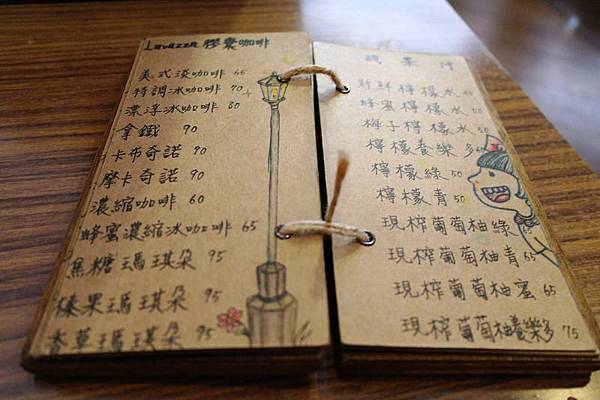 Lavazza 膠囊咖啡
美式淡咖啡 65
特調冰咖啡 70
漂浮冰咖啡 80
拿鐵 90
卡布奇諾 90
摩卡奇諾 90
濃縮咖啡 60
蜂蜜濃縮冰咖啡 65
焦糖瑪琪朵 95
榛果瑪琪朵 95
香草瑪琪朵 95
果汁
新鮮檸檬水
蜂蜜檸檬水
梅子檸檬水
檸檬養樂多
檸檬綠 50
檸檬青 50
現榨葡萄柚綠
現榨葡萄柚青 65
現榨葡萄柚蜜 65
現榨葡萄柚養樂多 75